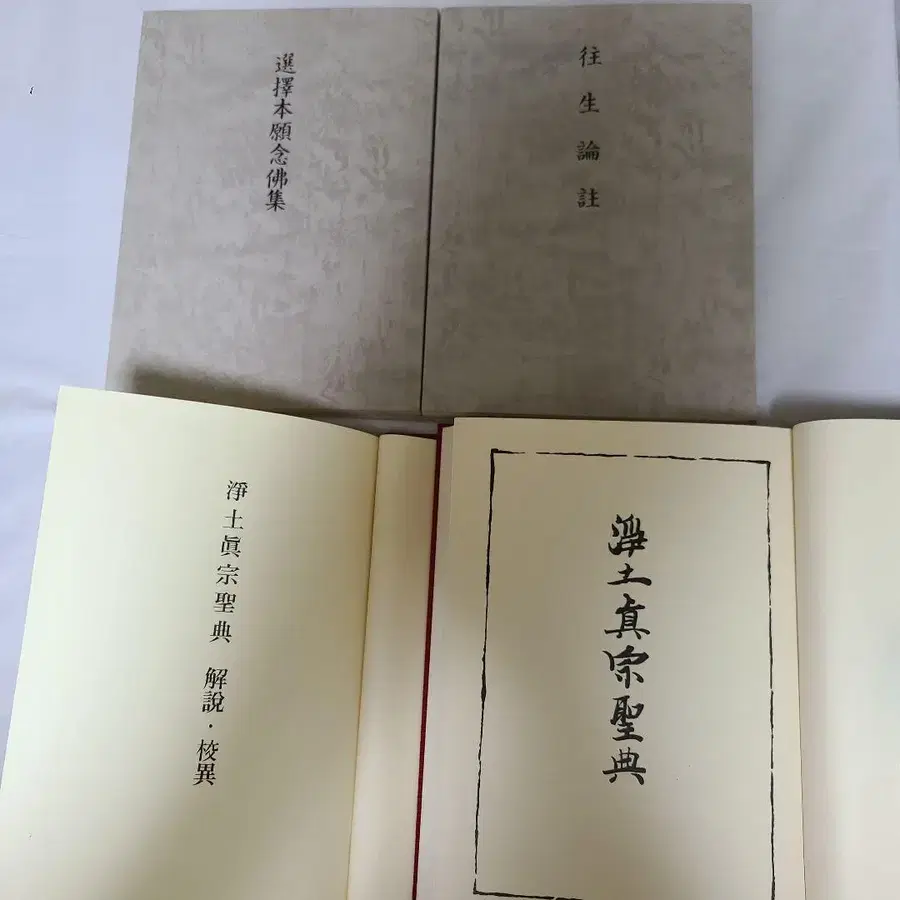 選擇本願念佛集
往生論註
淨土眞宗聖典 解說・校異
淨土真宗聖典